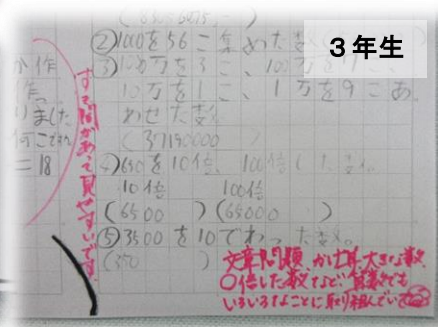 3年生
②1000を56こ集めた数
③1000万を3こ、100万を7こ、
10万を1こ、1万を9こあ
わせた数
(37190000)
④650を10倍、100倍した数。
10倍 100倍
(6500)(65000)
⑤3500を10でわった数。
(350)
作
作っ
りました
何こできた
=18
すき間があって見やすいです
文章問題、かけ算、大きな数、
○倍した数など、算数でも
いろいろなことに取り組んでいて